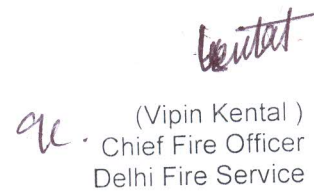 Kental
(Vipin Kental )
Chief Fire Officer
Delhi Fire Service